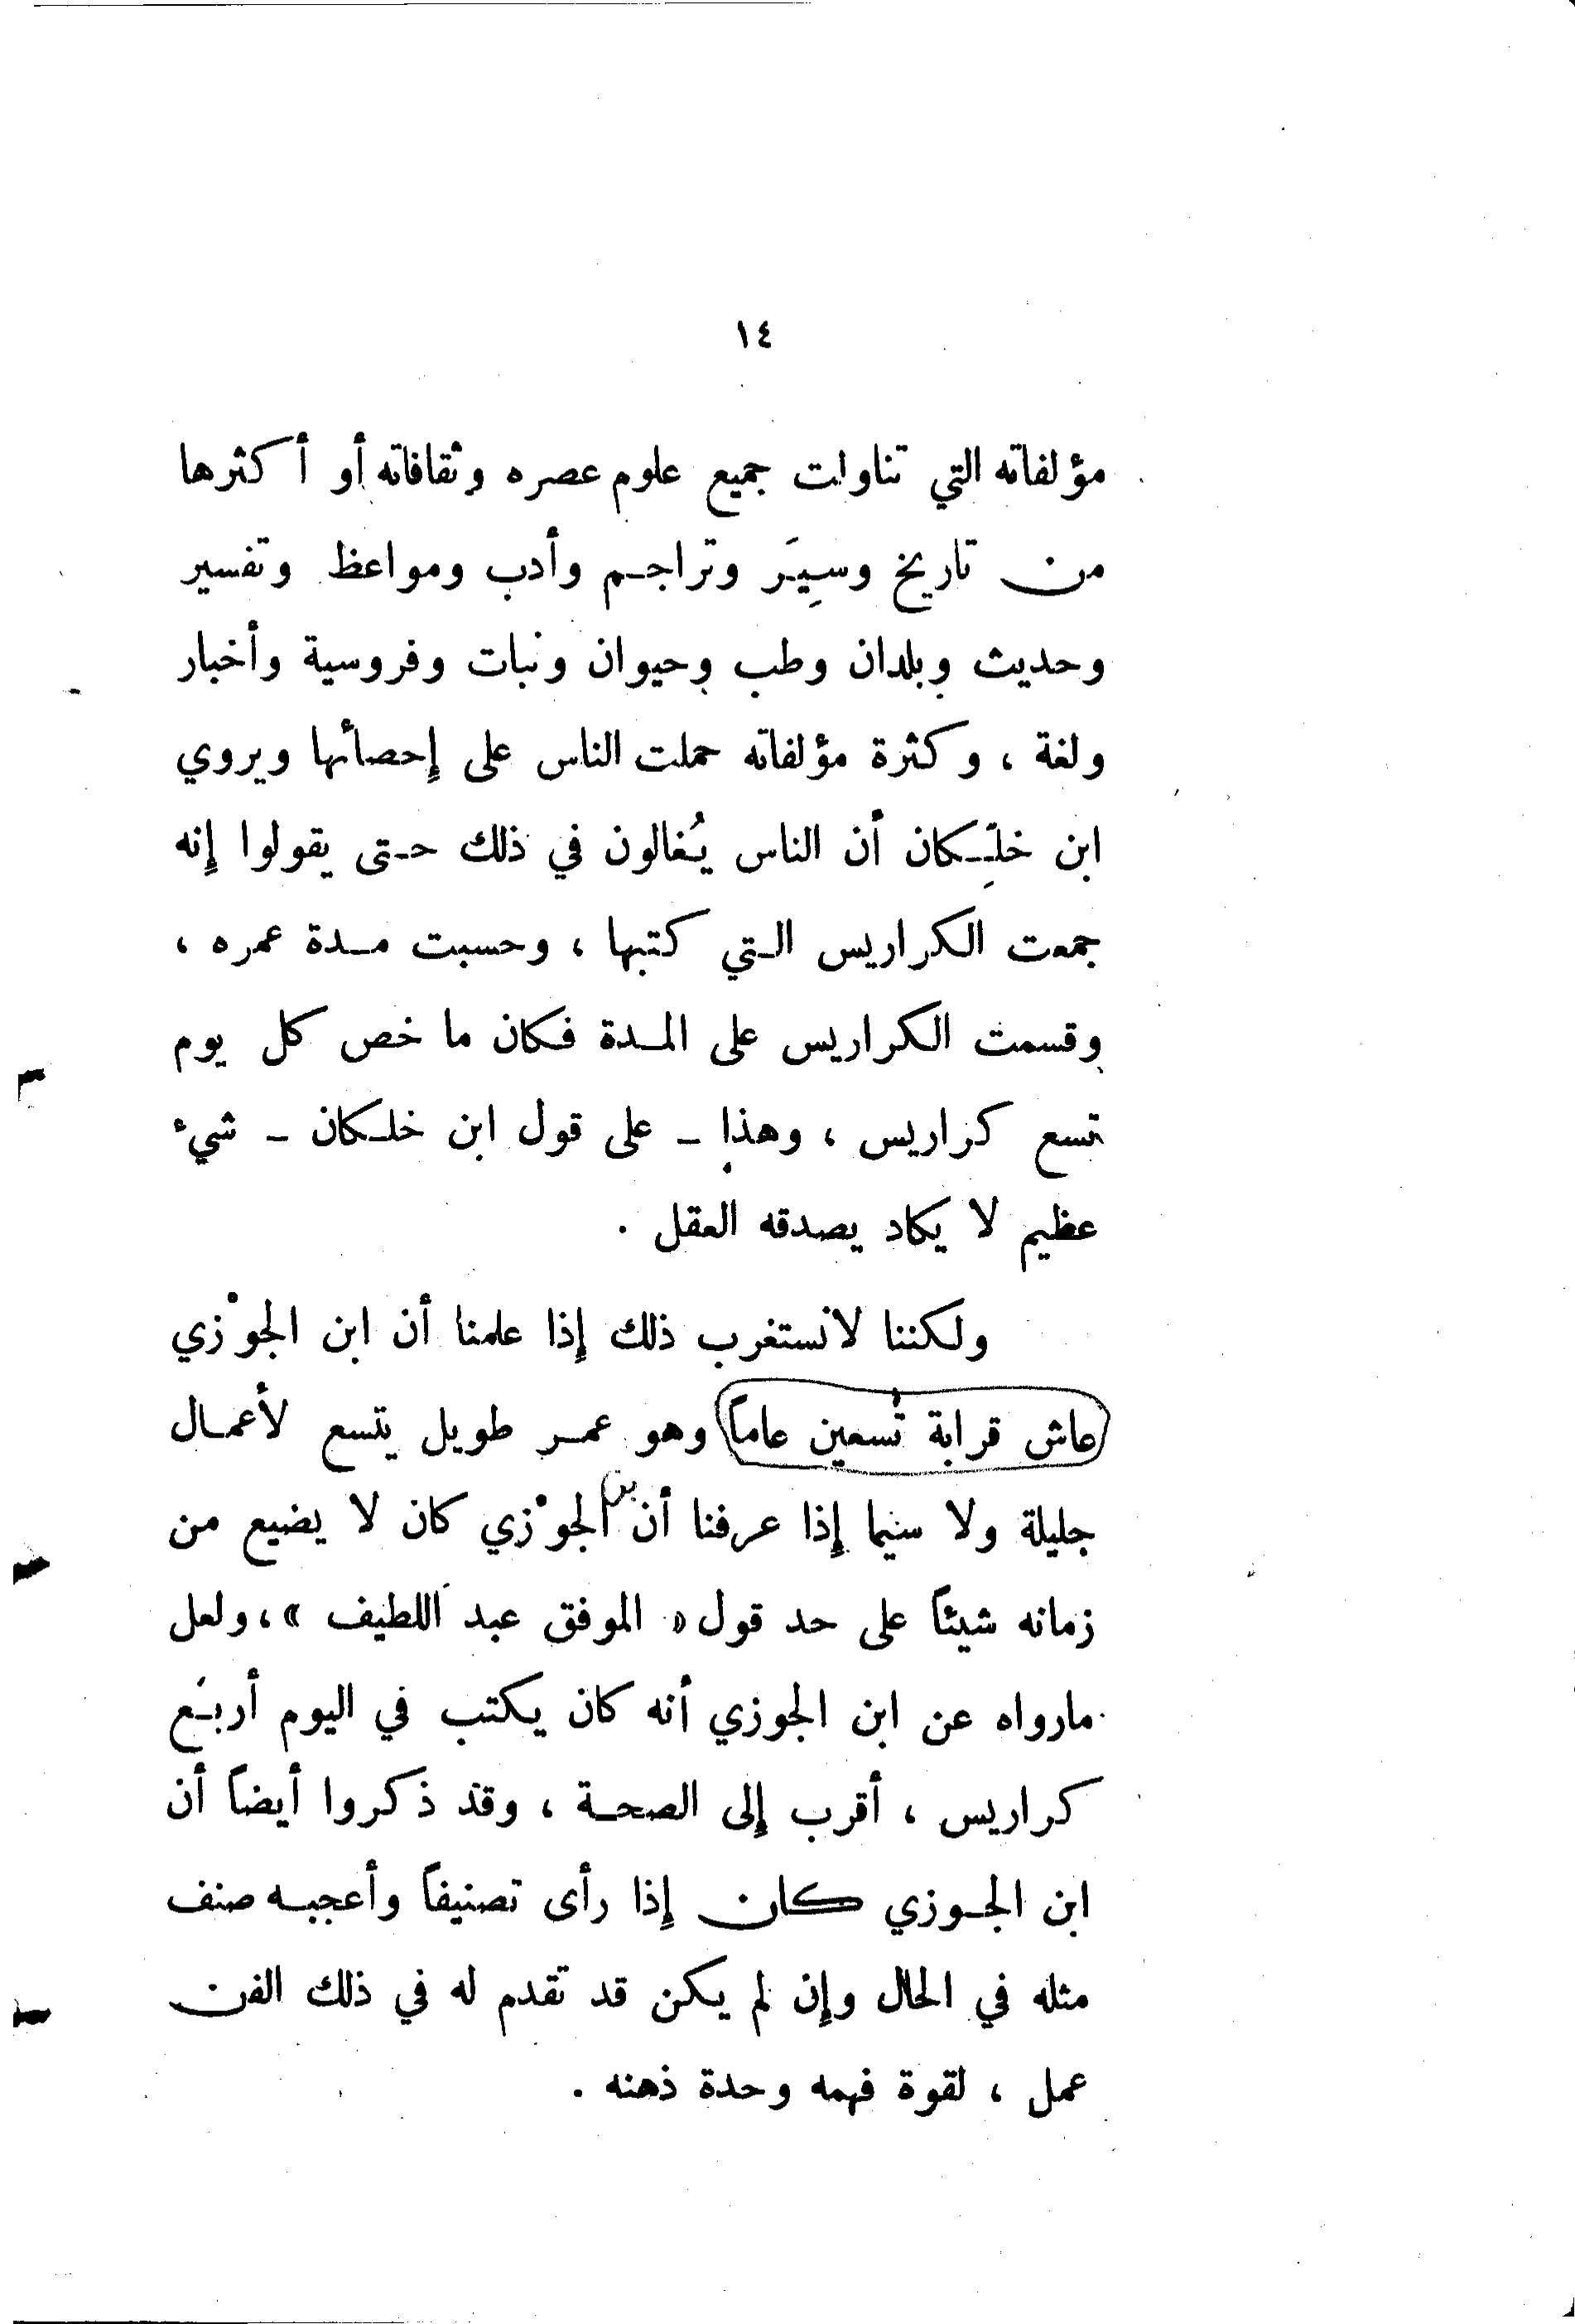 ١٤
مؤلفاته التي تناولت جميع علوم عصره وثقافاته أو أكثرها
من تاريخ وسِيَر وتراجم وأدب ومواعظ وتفسير
وحديث وبلدان وطب وحيوان ونبات وفروسية وأخبار
ولغة ، وكثرة مؤلفاته حملت الناس على إحصائها ويروي
ابن خلِّكان أن الناس يُغالون في ذلك حتى يقولوا إنه
جمعت الكراريس التي كتبها ، وحسبت مدة عمره ،
وقسمت الكراريس على المدة فكان ما خص كل يوم
تسع كراريس ، وهذا – على قول ابن خلكان – شيء
عظيم لا يكاد يصدقه العقل .
ولكننا لانستغرب ذلك إذا علمنا أن ابن الجوْزي
عاش قرابة تُسعين عاماً وهو عمر طويل يتسع لأعمال
جليلة ولا سيما إذا عرفنا أن بن الجوْزي كان لا يضيع من
زمانه شيئاً على حد قول « الموفق عبد اللطيف » ، ولعل
مارواه عن ابن الجوزي أنه كان يكتب في اليوم أربَع
كراريس ، أقرب إلى الصحة ، وقد ذكروا أيضاً أن
ابن الجوزي كان إذا رأى تصنيفاً وأعجبه صنف
مثله في الحال وإن لم يكن قد تقدم له في ذلك الفن
عمل ، لقوة فهمه وحدة ذهنه .